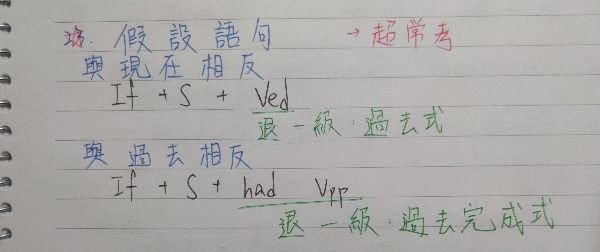 假設語句 → 超常考
與現在相反
If + S + Ved
退一級.過去式
與過去相反
If + S + had Vpp
退一級.過去完成式